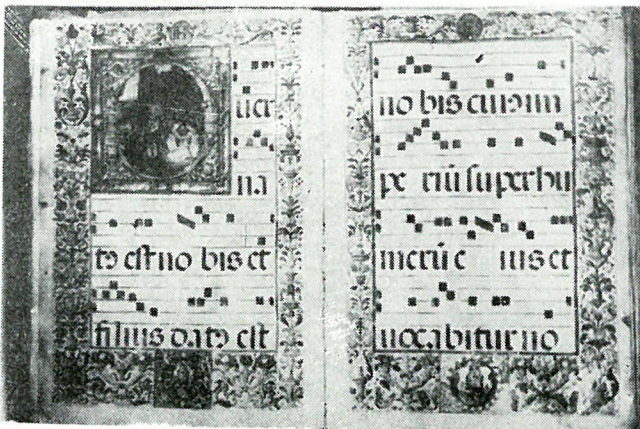 uer
na
tꝰ est no bis et
filius datꝰ est
no bis cuiꝰ im
pe riū super hu
merū e ius et
uocabitur no